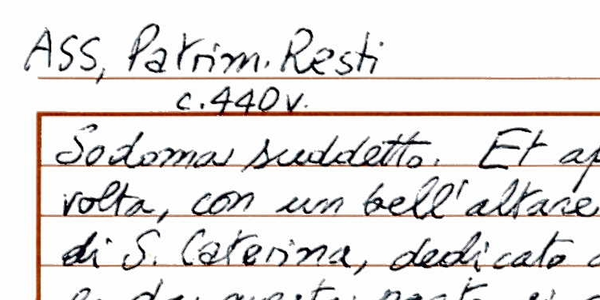 ASS, Patrim. Resti
c. 440v.
Sodoma suddetto. Et ap
volta, con un bell'altare
di S. Caterina, dedicato
e da questa parte si